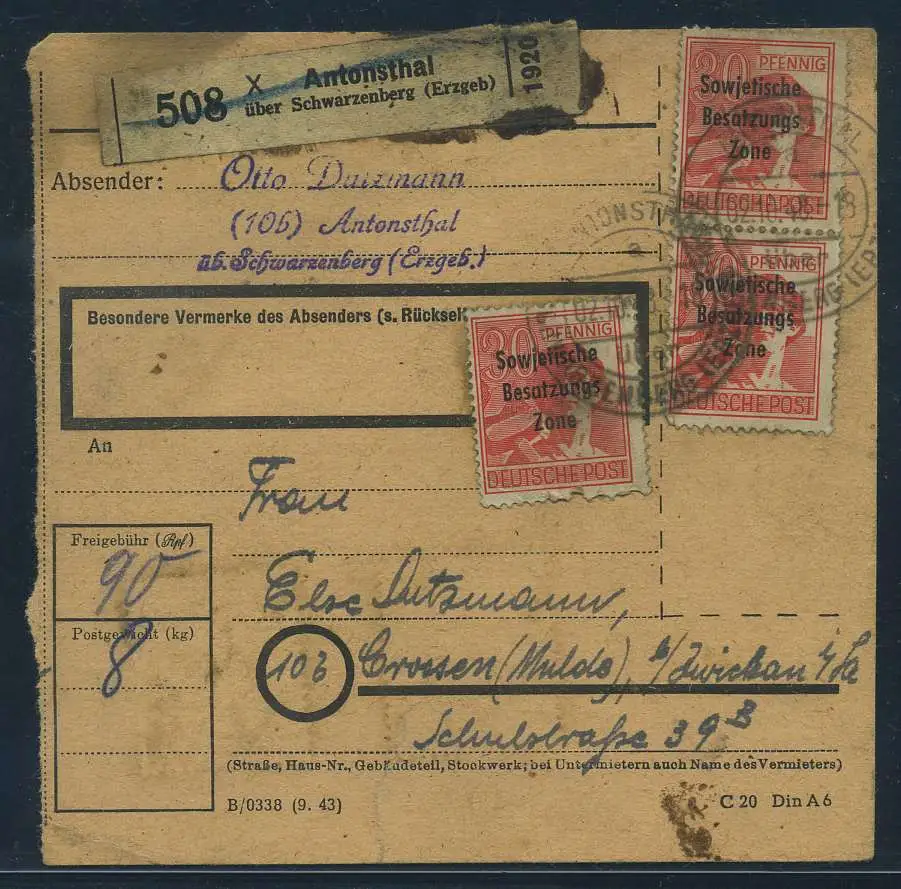 508 X Antonsthal
über Schwarzenberg (Erzgeb)
1920
30 PFENNIG
Sowjetische
Besatzungs
Zone
DEUTSCHE POST
Absender: Otto Dutzmann
(10b) Antonsthal
üb. Schwarzenberg (Erzgeb.)
PFENNIG
Sowjetische
Besatzungs
Zone
DEUTSCHE POST
Besondere Vermerke des Absenders (s. Rücksei
30 PFENNIG
Sowjetische
Besatzungs
Zone
DEUTSCHE POST
An
Frau
Freigebühr (Rpf)
90
Else Dutzmann,
Postgewicht (kg)
8
10b Crossen (Mulde), b/Zwickau i/Sa
Schulstraße 39 B
(Straße, Haus-Nr., Gebäudeteil, Stockwerk; bei Untermietern auch Name des Vermieters)
B/0338 (9. 43)
C 20 Din A 6